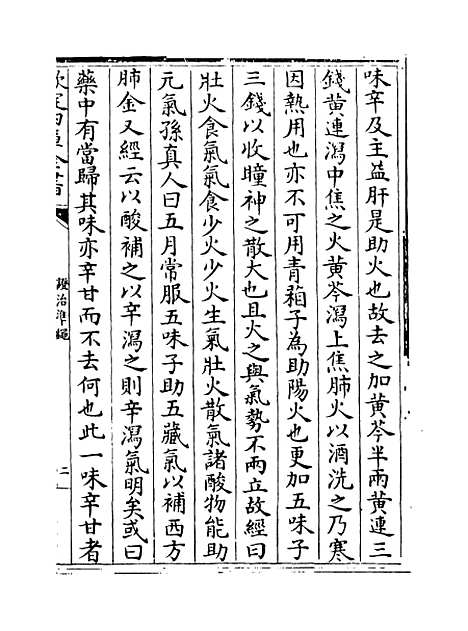 味辛及主益肝是助火也故去之加黄芩半兩黄連三
錢黄連瀉中焦之火黄芩瀉上焦肺火以酒洗之乃寒
因熱用也亦不可用青葙子為助陽火也更加五味子
三錢以收瞳神之散大也且火之與氣勢不兩立故經曰
壯火食氣氣食少火少火生氣壯火散氣諸酸物能助
元氣孫真人曰五月常服五味子助五藏氣以補西方
肺金又經云以酸補之以辛瀉之則辛瀉氣明矣或曰
藥中有當歸其味亦辛甘而不去何也此一味辛甘者
欽定四庫全書
證治準繩